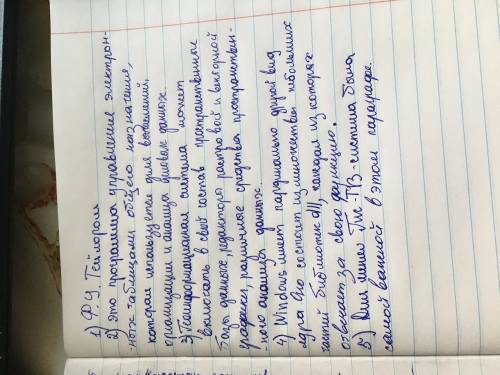 1) Ф.У. Тейлором
2) Это программа управления электрон-
ных таблицами общего назначения,
которая используется для вычислений,
организации и анализа деловых данных.
3) Геоинформационная система может
включать в свой состав пространственные
базы данных, редакторы растровой и векторной
графики, различные средства пространствен-
ного анализа данных.
4) Windows имеет кардинально другой вид
ядра Оно состоит из множества небольших
частей библиотек dll, каждая из которых
отвечает за свою функцию.
5) Для меня ГИС-ТВЗ-система была
самой важной в этом параграфе.